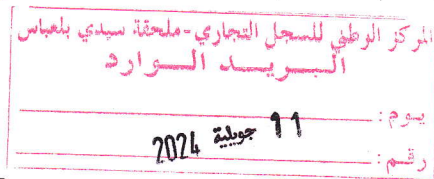 المركز الوطني للسجل التجاري - ملحقة سيدي بلعباس
البريد الوارد
يوم: 11 جويلية 2024
رقم: